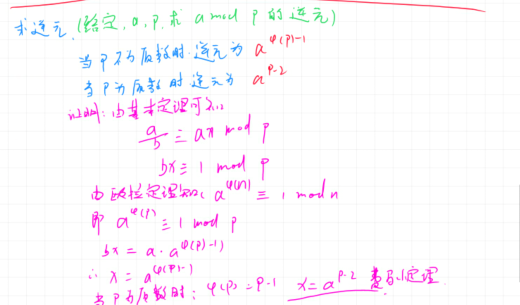 求逆元 (给定 a, p, 求 a mod p 的逆元)
当 P 不为质数时 逆元为 a^φ(P)-1
当 P 为质数时 逆元为 a^P-2
证明: 由基本定理可知
a/b ≡ ax mod p
bx ≡ 1 mod p
由欧拉定理知 a^φ(n) ≡ 1 mod n
即 a^φ(P) ≡ 1 mod p
bx = a · a^φ(P)-1)
∴ x = a^φ(P)-1
当 P 为质数时: φ(P) = P-1 x = a^P-2 费马小定理